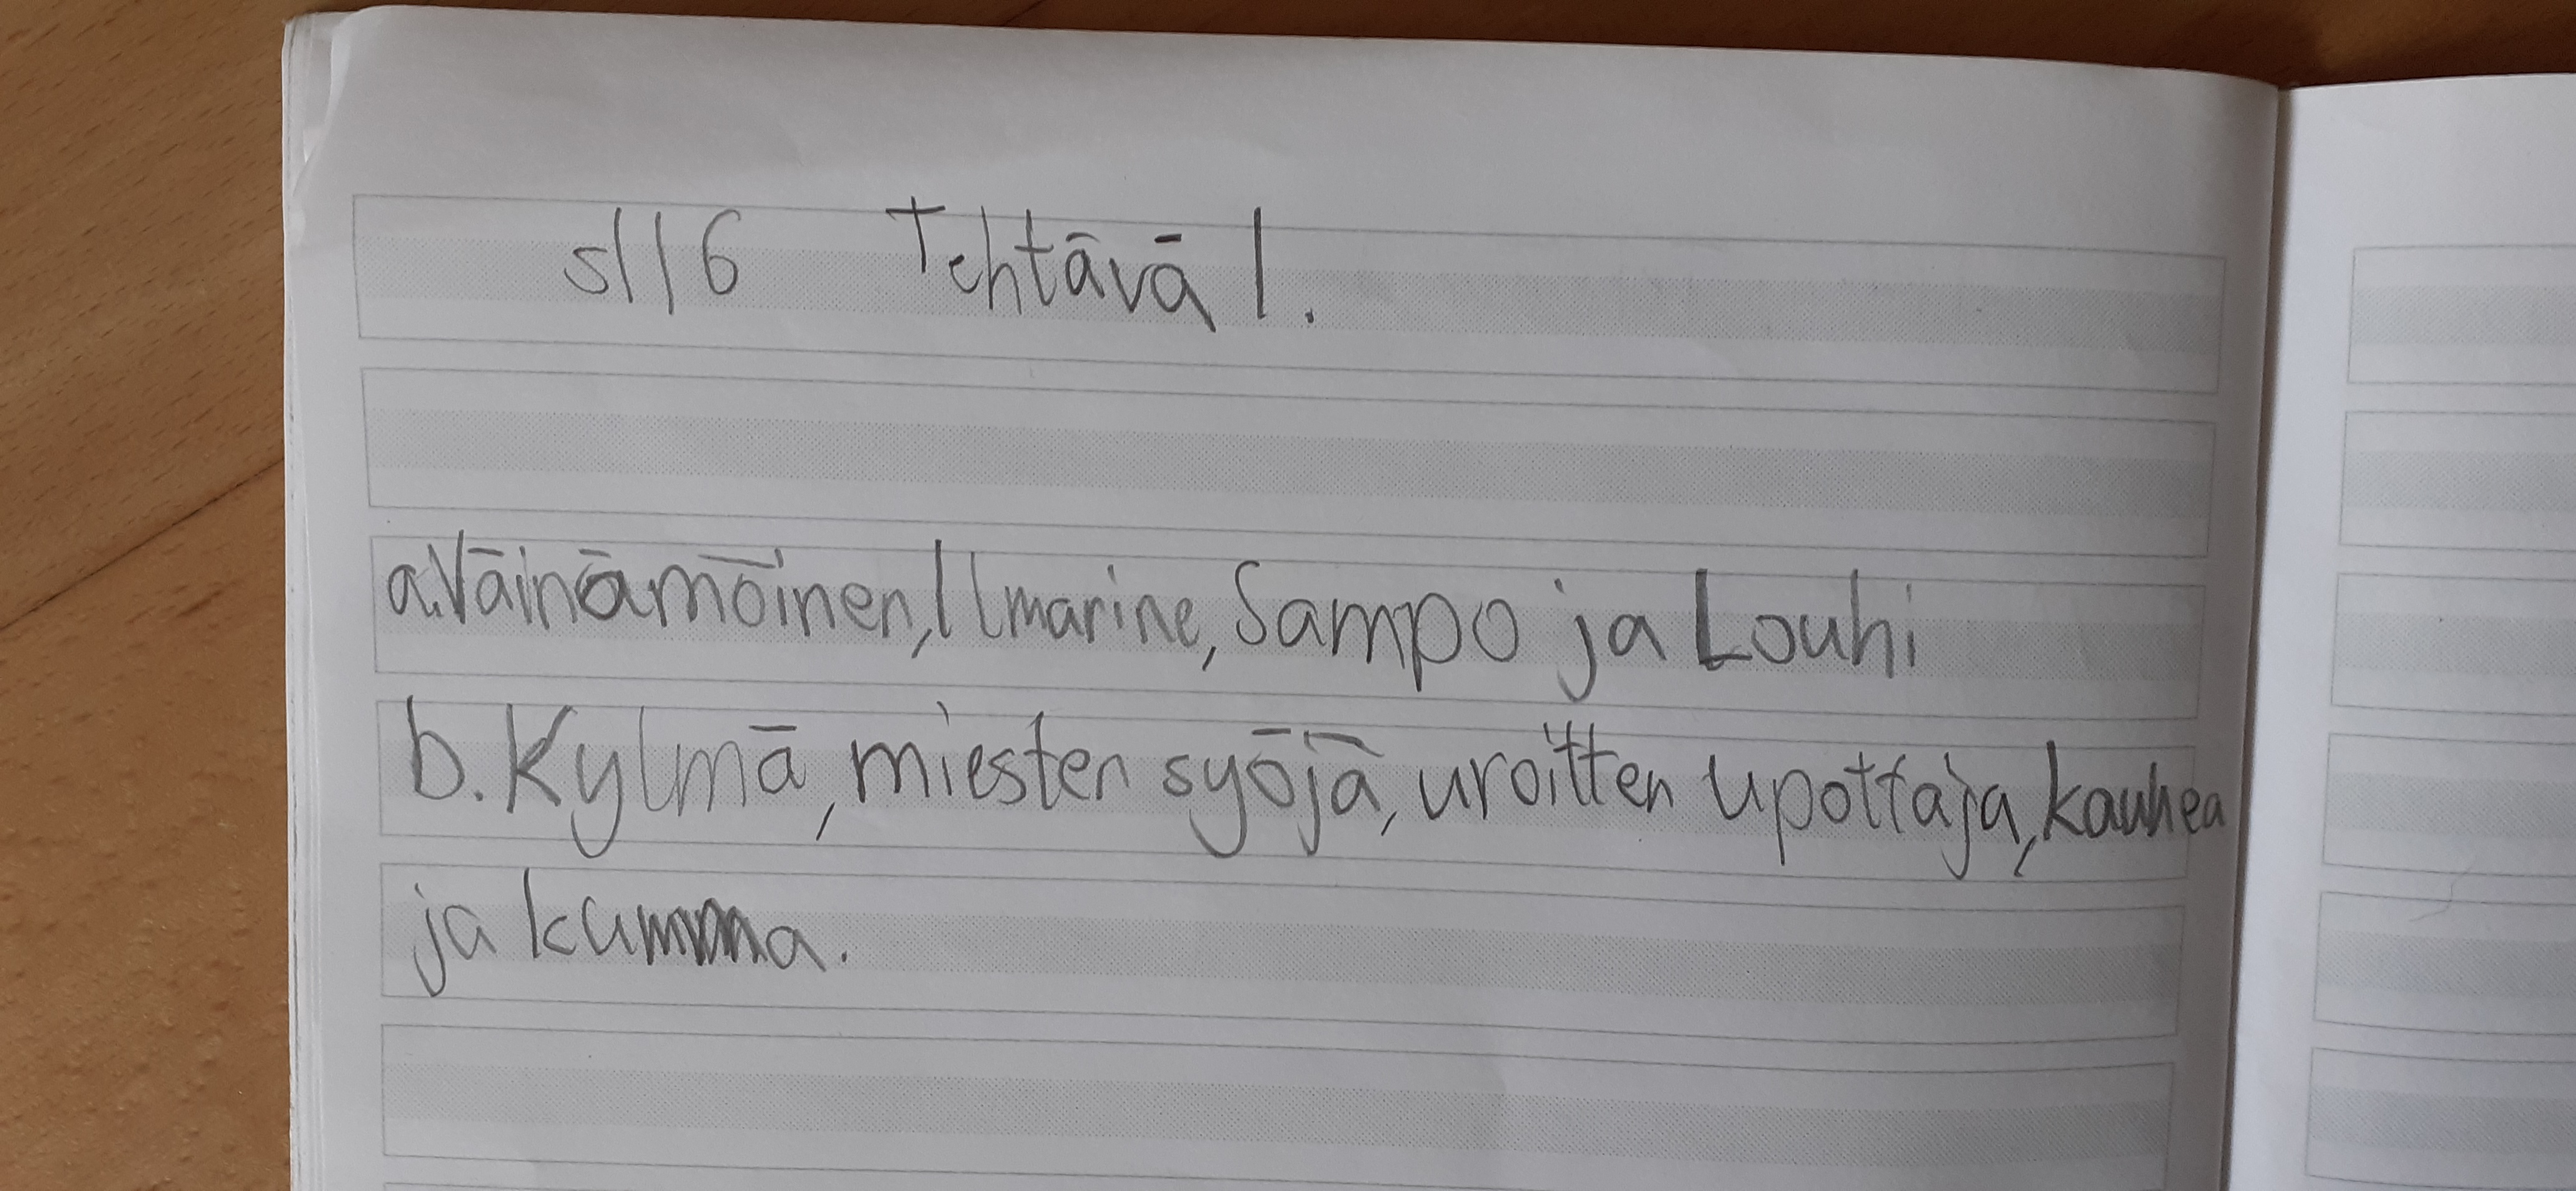 s116 Tehtävä 1.
a. Väinämöinen, Ilmarine, Sampo ja Louhi
b. Kylmä, miesten syöjä, uroitten upottaja, kauhea
ja kumma.